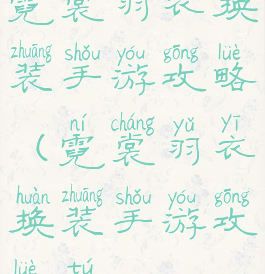 霓裳羽衣换
zhuāng shǒu yóu gōng lüè
装手游攻略
ní cháng yǔ yī
(霓裳羽衣
huàn zhuāng shǒu yóu gōng
换装手游攻
lüè tú